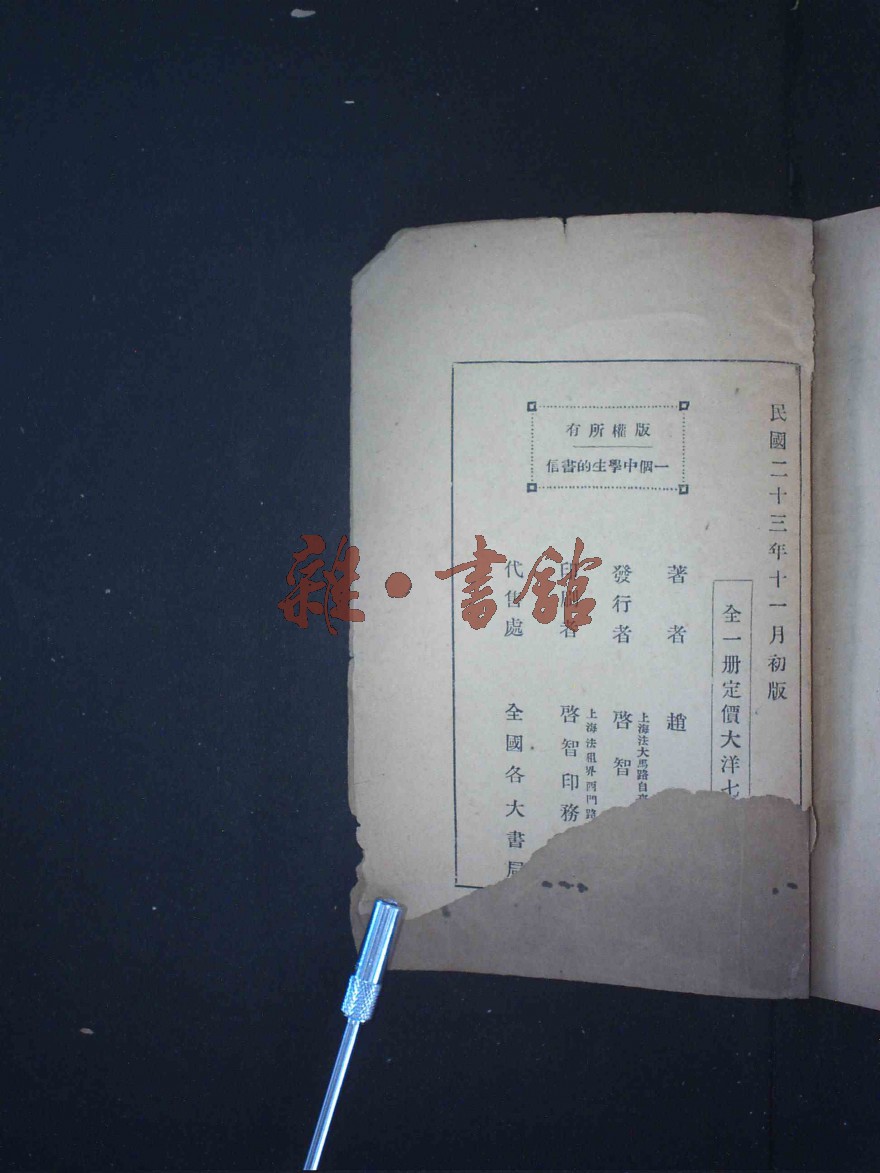 民國二十三年十一月初版
全一册定價大洋七
版權所有
一個中學生的書信
著者 趙
上海法大馬路自
發行者 啓智
上海法租界西門路
印刷者 啓智印務
代售處 全國各大書局
雜·書館